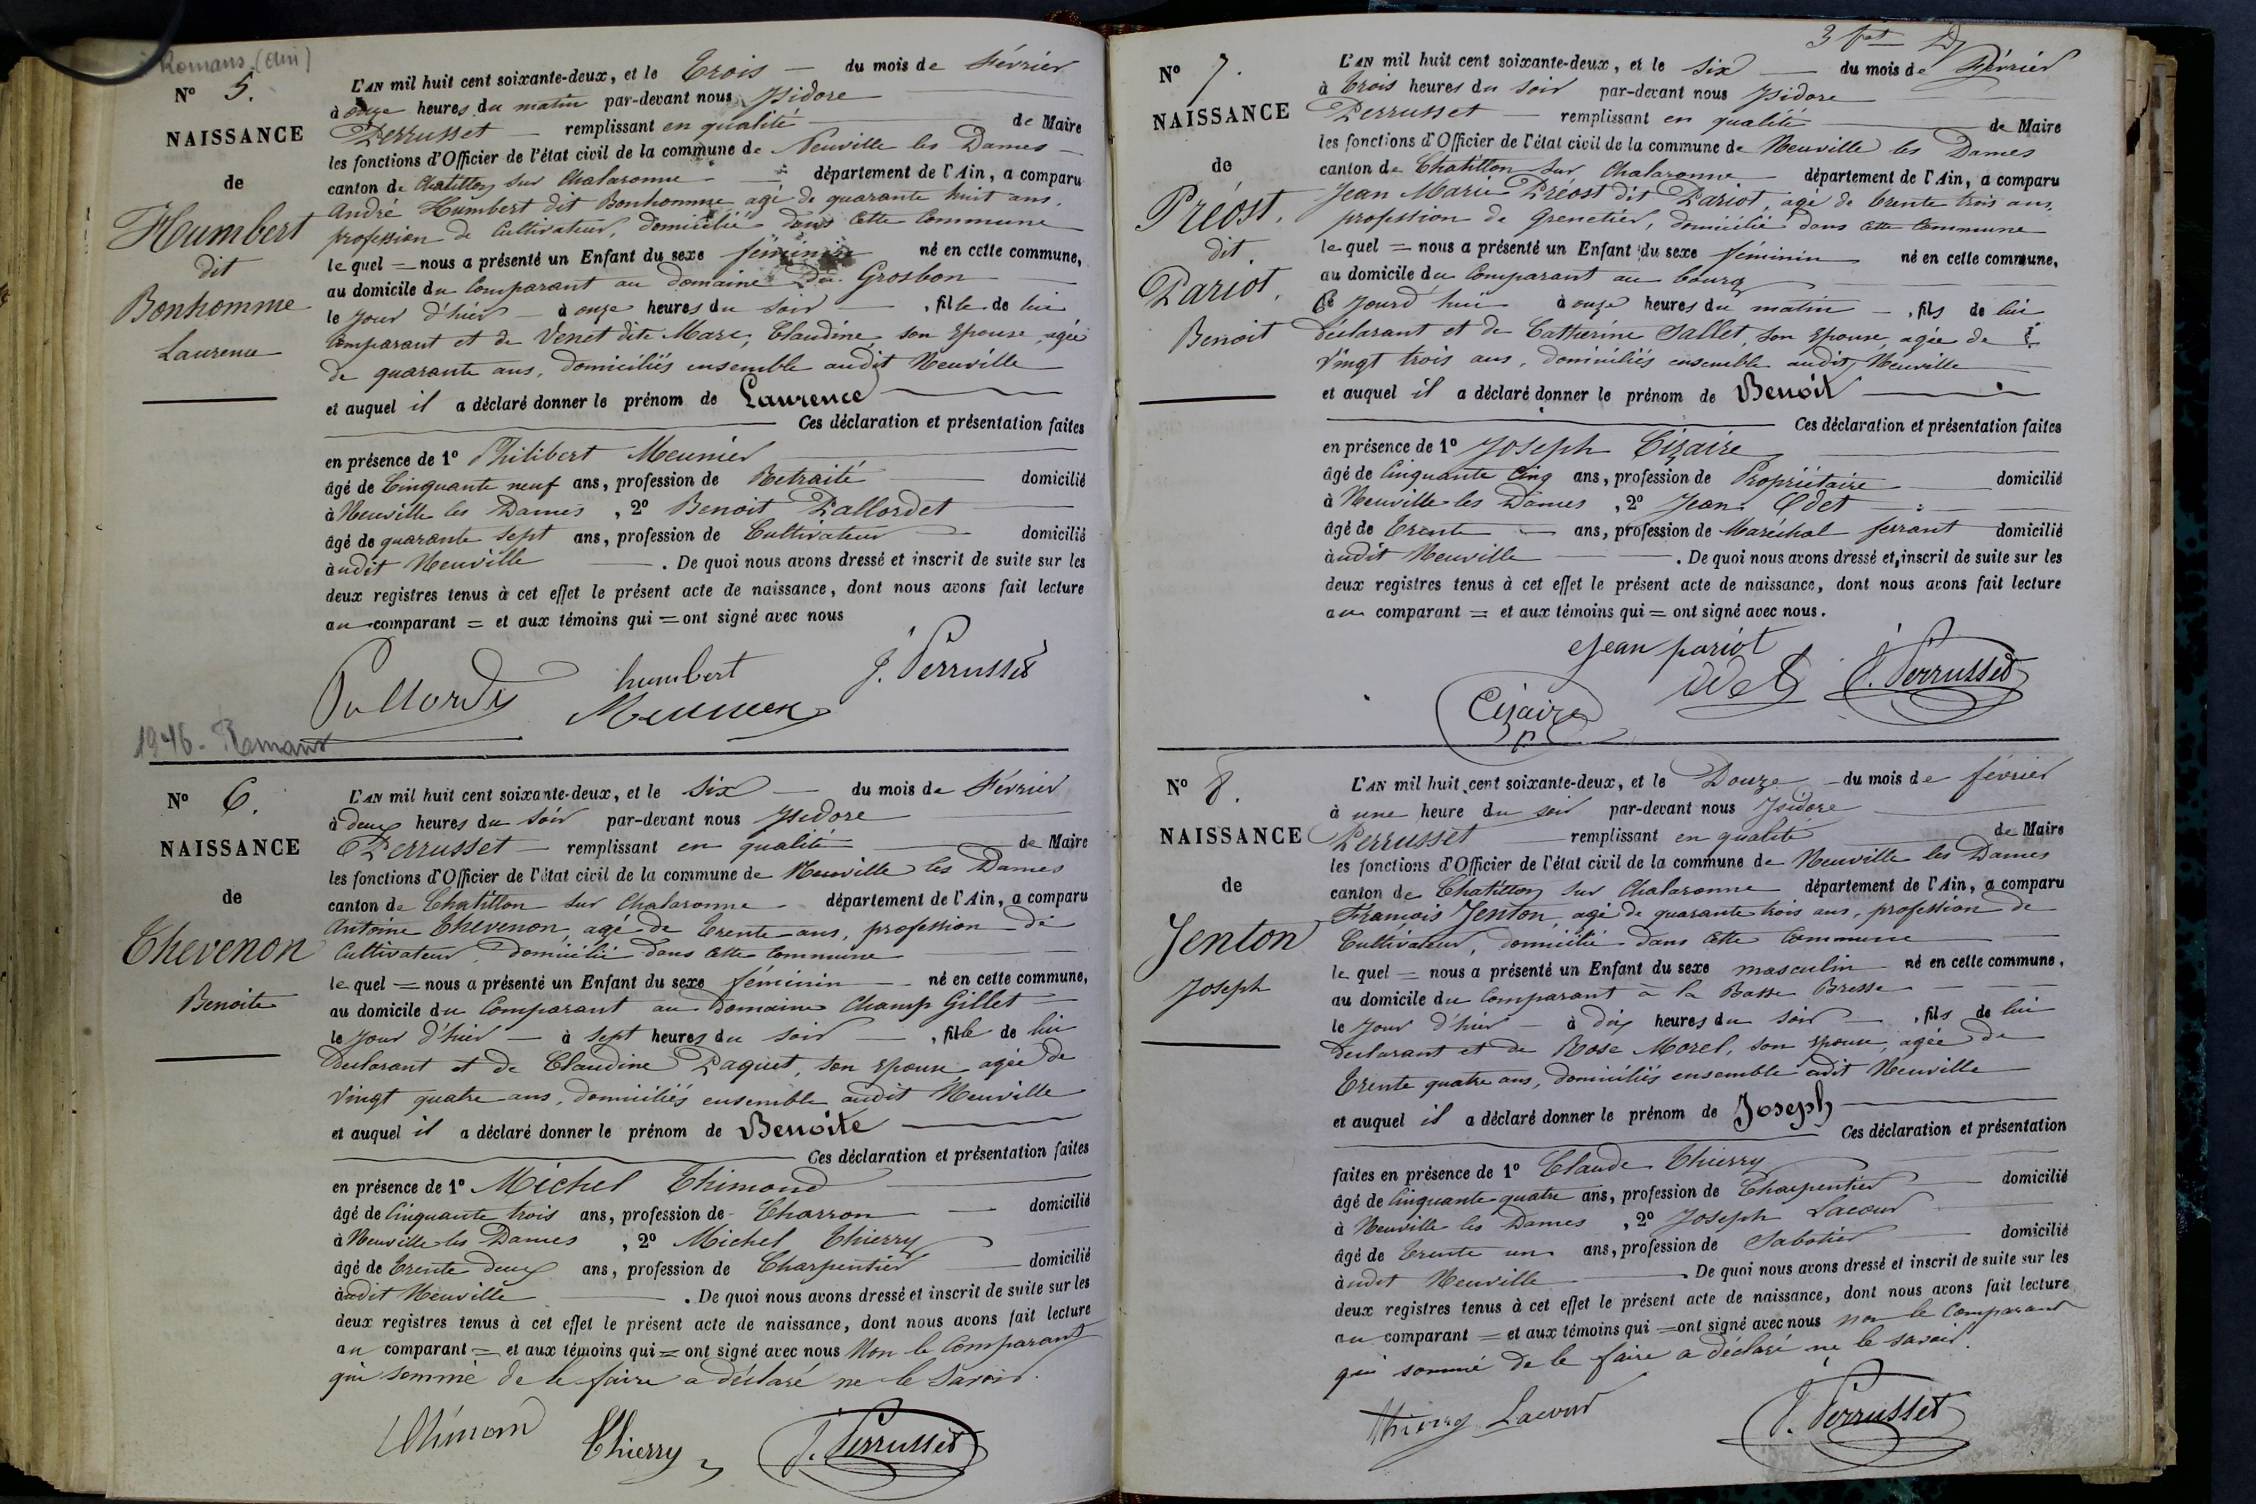 Romans (Ain)
N° 5.
NAISSANCE
de
Humbert
dit
Bonhomme
Laurence
L'AN mil huit cent soixante-deux, et le Trois du mois de Février
à onze heures du matin par-devant nous Isidore
Perrusset remplissant en qualité de Maire
les fonctions d'Officier de l'état civil de la commune de Neuville les Dames
canton de Chatillon sur Chalaronne département de l'Ain, a comparu
André Humbert dit Bonhomme agé de quarante huit ans,
profession de Cultivateur, domicilié dans cette commune
lequel = nous a présenté un Enfant du sexe féminin né en cette commune,
au domicile du Comparant au domaine du Grosbon
le jour d'hier à onze heures du soir, fille de lui
Comparant et de Venet dite Mare, Claudine, son épouse, agée
de quarante ans, domiciliés ensemble audit Neuville
et auquel il a déclaré donner le prénom de Laurence
Ces déclaration et présentation faites
en présence de 1° Philibert Meunier
âgé de Cinquante neuf ans, profession de Retraité domicilié
à Neuville les Dames, 2° Benoit Pallordet
âgé de quarante sept ans, profession de Cultivateur domicilié
audit Neuville. De quoi nous avons dressé et inscrit de suite sur les
deux registres tenus à cet effet le présent acte de naissance, dont nous avons fait lecture
au comparant = et aux témoins qui = ont signé avec nous
humbert J. Perrusset
Pallordet Meunier
1946 - Romans
N° 6.
NAISSANCE
de
Thevenon
Benoite
L'AN mil huit cent soixante-deux, et le Six du mois de Février
à deux heures du soir par-devant nous Isidore
Perrusset remplissant en qualité de Maire
les fonctions d'Officier de l'état civil de la commune de Neuville les Dames
canton de Chatillon sur Chalaronne département de l'Ain, a comparu
Antoine Thevenon, agé de Trente ans, profession de
Cultivateur, domicilié dans cette commune
lequel = nous a présenté un Enfant du sexe féminin né en cette commune,
au domicile du Comparant au domaine Champ Gillet
le jour d'hier à sept heures du soir, fille de lui
Declarant et de Claudine Paquet, son épouse, agée de
Vingt quatre ans, domiciliés ensemble audit Neuville
et auquel il a déclaré donner le prénom de Benoite
Ces déclaration et présentation faites
en présence de 1° Michel Thimond
âgé de Cinquante trois ans, profession de Charron domicilié
à Neuville les Dames, 2° Michel Thierry
âgé de trente deux ans, profession de Charpentier domicilié
audit Neuville. De quoi nous avons dressé et inscrit de suite sur les
deux registres tenus à cet effet le présent acte de naissance, dont nous avons fait lecture
au comparant = et aux témoins qui = ont signé avec nous Non le Comparant
qui sommé de le faire a déclaré ne le Savoir.
Thimond Thierry J. Perrusset
N° 7.
NAISSANCE
de
Préost,
dit
Pariot,
Benoit
L'AN mil huit cent soixante-deux, et le Six du mois de Février
à trois heures du soir par-devant nous Isidore
Perrusset remplissant en qualité de Maire
les fonctions d'Officier de l'état civil de la commune de Neuville les Dames
canton de Chatillon sur Chalaronne département de l'Ain, a comparu
Jean Marie Préost dit Pariot, agé de trente trois ans,
profession de Grenetier, domicilié dans cette commune
lequel = nous a présenté un Enfant du sexe féminin né en cette commune,
au domicile du Comparant au bourg
Ce jourd'hui à onze heures du matin, fils de lui
Declarant et de Catherine Sallet, son épouse, agée de
Vingt trois ans, domiciliés ensemble audit Neuville
et auquel il a déclaré donner le prénom de Benoit
Ces déclaration et présentation faites
en présence de 1° Joseph Cizaire
âgé de Cinquante Cinq ans, profession de Propriétaire domicilié
à Neuville les Dames, 2° Jean Odet
âgé de Trente ans, profession de Maréchal ferrant domicilié
audit Neuville. De quoi nous avons dressé et inscrit de suite sur les
deux registres tenus à cet effet le présent acte de naissance, dont nous avons fait lecture
au comparant = et aux témoins qui = ont signé avec nous.
Jean pariot
Cizaire odet J. Perrusset
N° 8.
NAISSANCE
de
Jenton
Joseph
L'AN mil huit cent soixante-deux, et le Douze du mois de février
à une heure du soir par-devant nous Isidore
Perrusset remplissant en qualité de Maire
les fonctions d'Officier de l'état civil de la commune de Neuville les Dames
canton de Chatillon sur Chalaronne département de l'Ain, a comparu
François Jenton, agé de quarante trois ans, profession de
Cultivateur, domicilié dans cette commune
lequel = nous a présenté un Enfant du sexe masculin né en cette commune,
au domicile du Comparant à la Basse Bresse
le jour d'hier à dix heures du soir, fils de lui
Declarant et de Rose Morel, son épouse, agée de
Trente quatre ans, domiciliés ensemble audit Neuville
et auquel il a déclaré donner le prénom de Joseph
Ces déclaration et présentation
faites en présence de 1° Claude Thierry
âgé de Cinquante quatre ans, profession de Charpentier domicilié
à Neuville les Dames, 2° Joseph Lacour
âgé de Trente un ans, profession de Sabotier domicilié
audit Neuville. De quoi nous avons dressé et inscrit de suite sur les
deux registres tenus à cet effet le présent acte de naissance, dont nous avons fait lecture
au comparant = et aux témoins qui = ont signé avec nous non le Comparant
qui sommé de le faire a déclaré ne le savoir.
thierry Lacour J. Perrusset